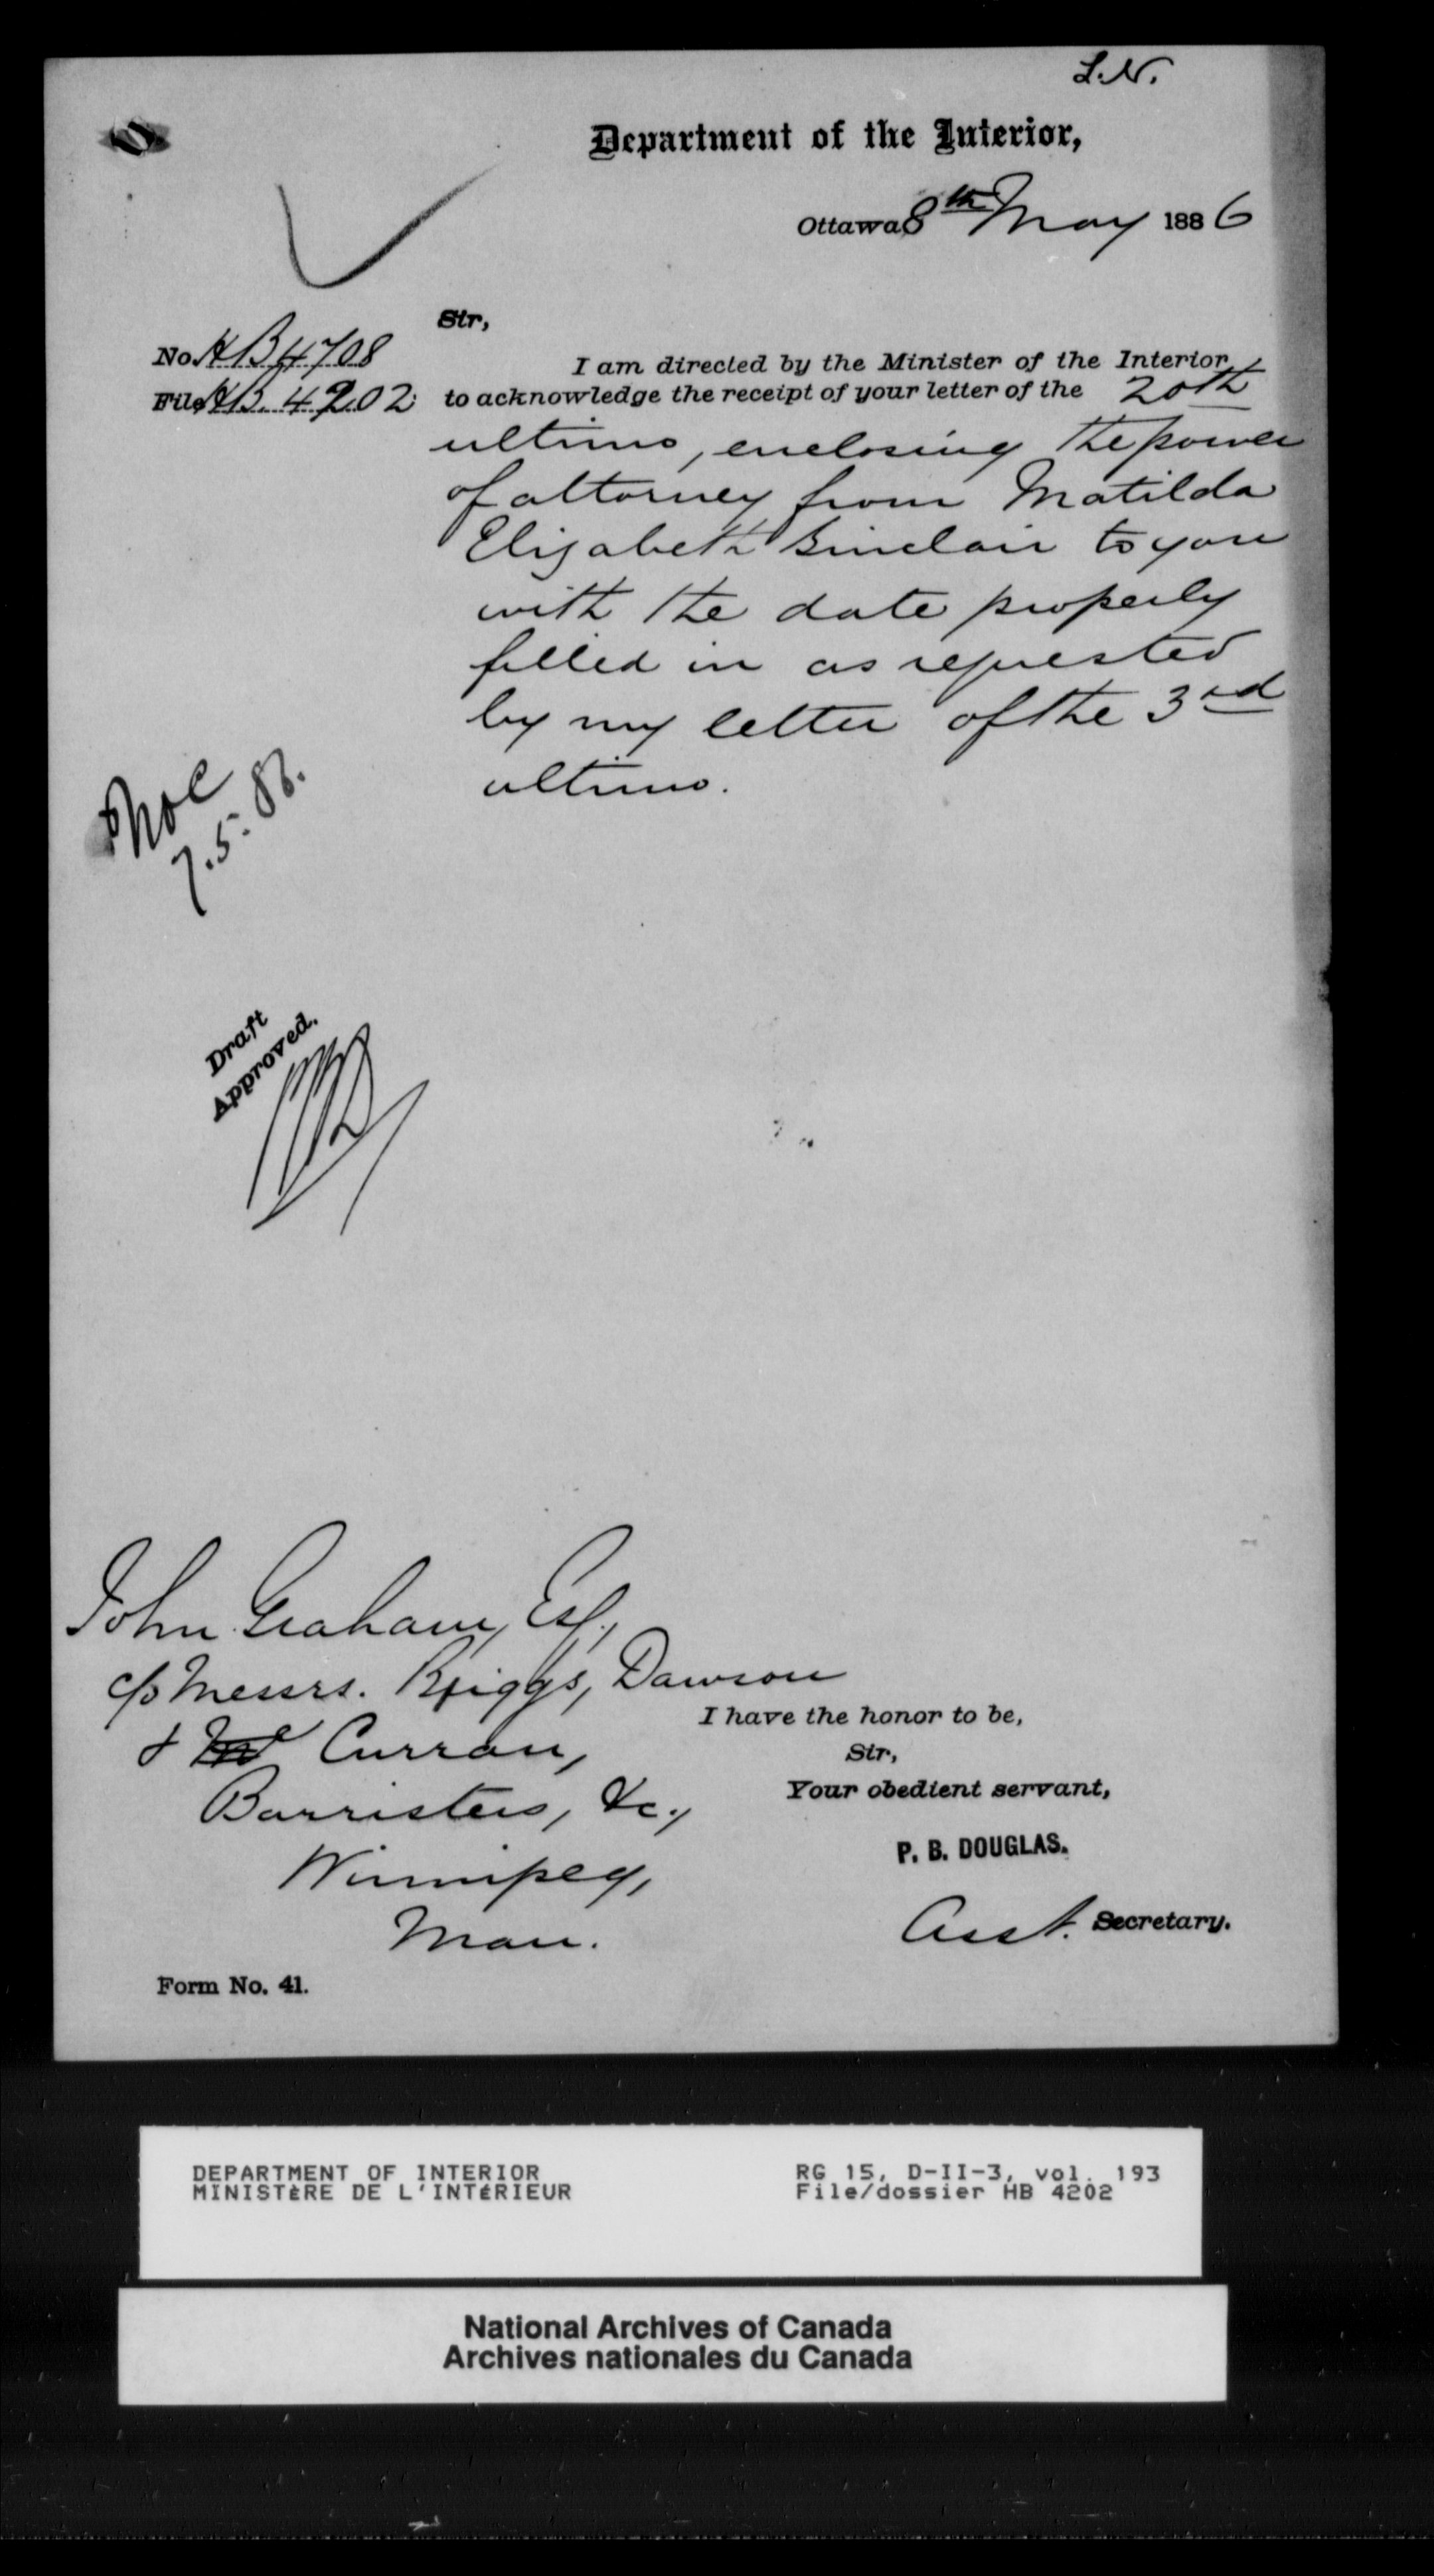 L.N.
Department of the Interior,
Ottawa 8th May 1886
Sir,
No. HB 4708
File HB. 4202
I am directed by the Minister of the Interior
to acknowledge the receipt of your letter of the 20th
ultimo, enclosing the power
of attorney from Matilda
Elizabeth Sinclair to you
with the date properly
filled in as requested
by my letter of the 3rd
ultimo.
7.5.86.
Draft
Approved.
John Graham, Esq.,
c/o Messrs. Briggs, Dawson
& Curran,
Barristers, &c.,
Winnipeg,
Man.
I have the honor to be,
Sir,
Your obedient servant,
P. B. DOUGLAS.
Asst. Secretary.
Form No. 41.
DEPARTMENT OF INTERIOR
MINISTÈRE DE L'INTÉRIEUR
RG 15, D-II-3, vol. 193
File/dossier HB 4202
National Archives of Canada
Archives nationales du Canada